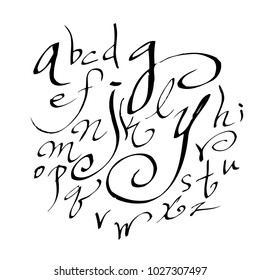 a b c d g
e f j k l y h i
m n r
o p q s t u
v w x z
shutterstock.com · 1027307497